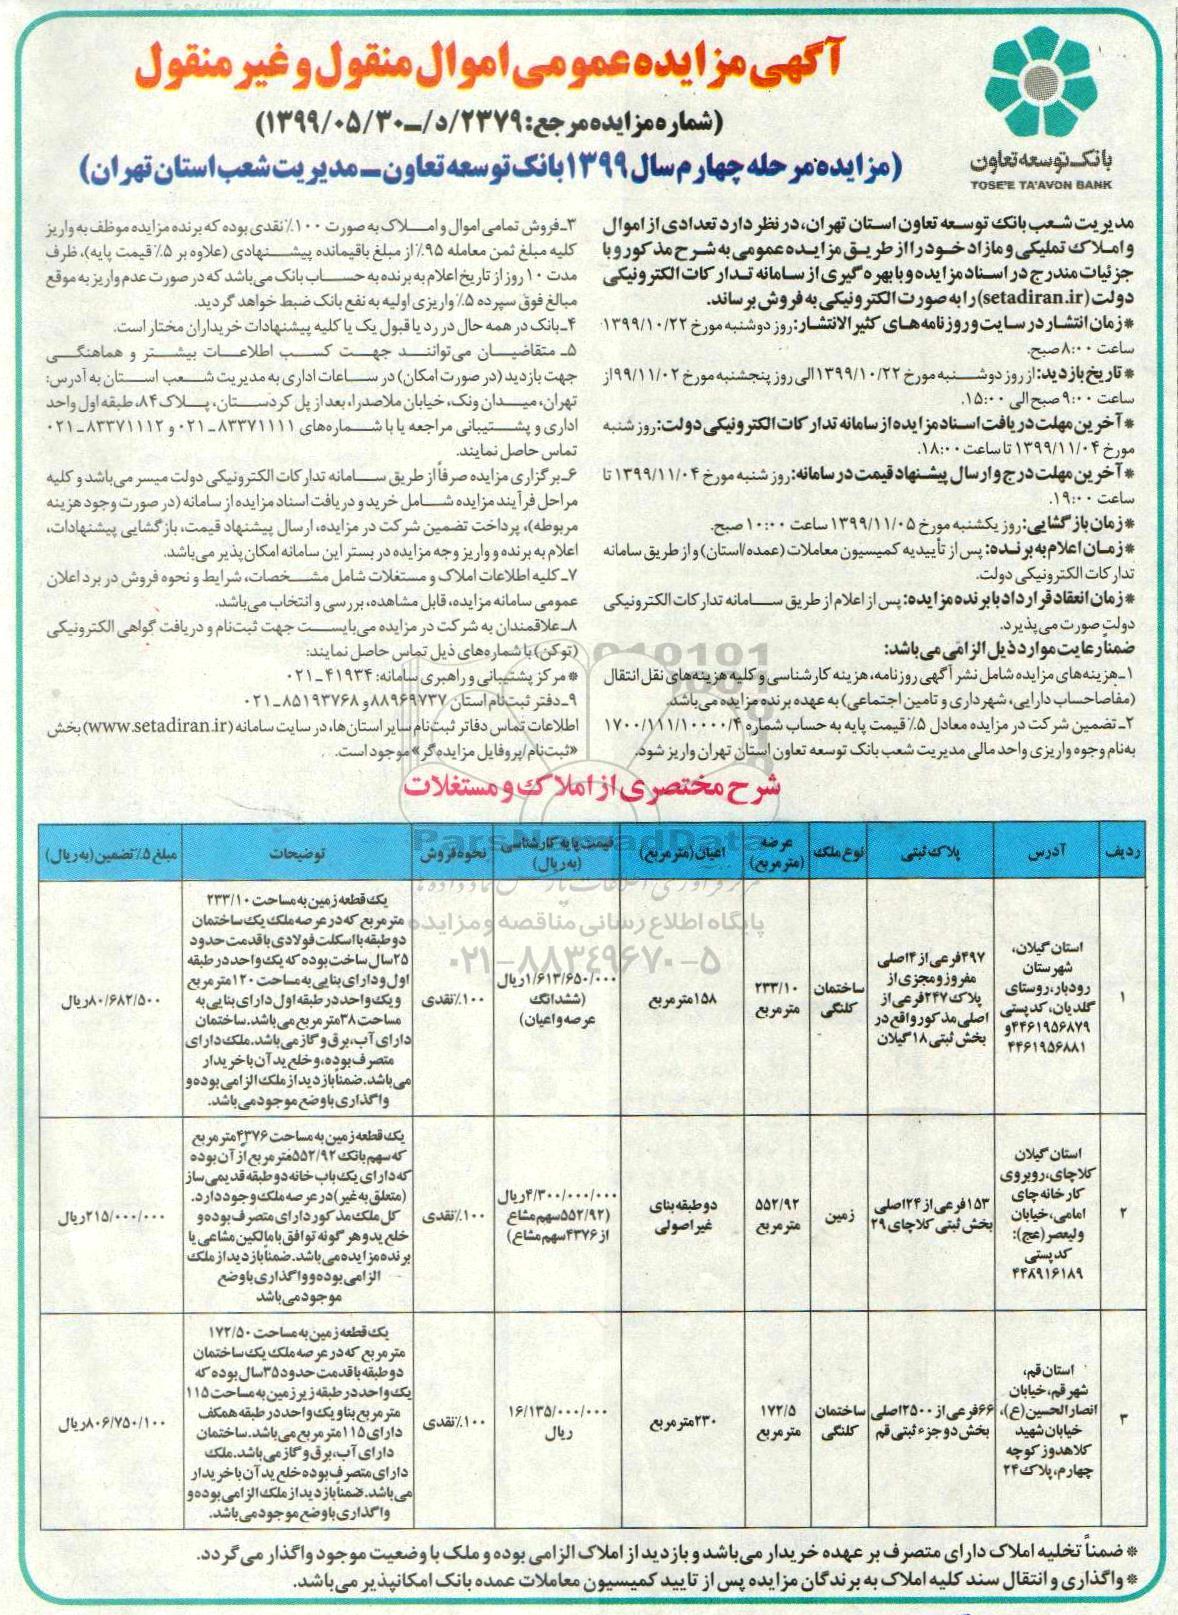 آگهی مزایده عمومی اموال منقول و غیر منقول
(شماره مزایده مرجع: ۲۳۷۹/د/ـ ۱۳۹۹/۰۵/۳۰)
(مزایده مرحله چهارم سال ۱۳۹۹ بانک توسعه تعاون ـ مدیریت شعب استان تهران)
بانک توسعه تعاون
TOSE'E TA'AVON BANK
مدیریت شعب بانک توسعه تعاون استان تهران، در نظر دارد تعدادی از اموال
و املاک تملیکی و مازاد خود را از طریق مزایده عمومی به شرح مذکور و با
جزئیات مندرج در اسناد مزایده و با بهره گیری از سامانه تدارکات الکترونیکی
دولت (setadiran.ir) را به صورت الکترونیکی به فروش برساند.
*زمان انتشار در سایت و روزنامه‌های کثیرالانتشار: روز دوشنبه مورخ ۱۳۹۹/۱۰/۲۲
ساعت ۸:۰۰ صبح.
*تاریخ بازدید: از روز دوشنبه مورخ ۱۳۹۹/۱۰/۲۲ الی روز پنجشنبه مورخ ۹۹/۱۱/۰۲ از
ساعت ۹:۰۰ صبح الی ۱۵:۰۰.
*آخرین مهلت دریافت اسناد مزایده از سامانه تدارکات الکترونیکی دولت: روز شنبه
مورخ ۱۳۹۹/۱۱/۰۴ تا ساعت ۱۸:۰۰.
*آخرین مهلت درج و ارسال پیشنهاد قیمت در سامانه: روز شنبه مورخ ۱۳۹۹/۱۱/۰۴ تا
ساعت ۱۹:۰۰.
*زمان بازگشایی: روز یکشنبه مورخ ۱۳۹۹/۱۱/۰۵ ساعت ۱۰:۰۰ صبح.
*زمان اعلام به برنده: پس از تأییدیه کمیسیون معاملات (عمده/استان) و از طریق سامانه
تدارکات الکترونیکی دولت.
*زمان انعقاد قرارداد با برنده مزایده: پس از اعلام از طریق سامانه تدارکات الکترونیکی
دولت صورت می‌پذیرد.
ضمناً رعایت موارد ذیل الزامی می‌باشد:
۱ـ هزینه‌های مزایده شامل نشر آگهی روزنامه، هزینه کارشناسی و کلیه هزینه‌های نقل انتقال
(مفاصاحساب دارایی، شهرداری و تامین اجتماعی) به عهده برنده مزایده می‌باشد.
۲ـ تضمین شرکت در مزایده معادل ۵٪ قیمت پایه به حساب شماره ۱۷۰۰/۱۱۱/۱۰۰۰۰/۴
به‌نام وجوه واریزی واحد مالی مدیریت شعب بانک توسعه تعاون استان تهران واریز شود.
۳ـ فروش تمامی اموال و املاک به صورت ۱۰۰٪ نقدی بوده که برنده مزایده موظف به واریز
کلیه مبلغ ثمن معامله ۹۵٪ از مبلغ باقیمانده پیشنهادی (علاوه بر ۵٪ قیمت پایه)، ظرف
مدت ۱۰ روز از تاریخ اعلام به برنده به حساب بانک می‌باشد که در صورت عدم واریز به موقع
مبالغ فوق سپرده ۵٪ واریزی اولیه به نفع بانک ضبط خواهد گردید.
۴ـ بانک در همه حال در رد یا قبول یک یا کلیه پیشنهادات خریداران مختار است.
۵ـ متقاضیان می‌توانند جهت کسب اطلاعات بیشتر و هماهنگی
جهت بازدید (در صورت امکان) در ساعات اداری به مدیریت شعب استان به آدرس:
تهران، میدان ونک، خیابان ملاصدرا، بعد از پل کردستان، پلاک ۸۴، طبقه اول واحد
اداری و پشتیبانی مراجعه یا با شماره‌های ۸۳۳۷۱۱۱۱ـ۰۲۱ و ۸۳۳۷۱۱۱۲ـ۰۲۱
تماس حاصل نمایند.
۶ـ برگزاری مزایده صرفاً از طریق سامانه تدارکات الکترونیکی دولت میسر می‌باشد و کلیه
مراحل فرآیند مزایده شامل خرید و دریافت اسناد مزایده از سامانه (در صورت وجود هزینه
مربوطه)، پرداخت تضمین شرکت در مزایده، ارسال پیشنهاد قیمت، بازگشایی پیشنهادات،
اعلام به برنده و واریز وجه مزایده در بستر این سامانه امکان پذیر می‌باشد.
۷ـ کلیه اطلاعات املاک و مستغلات شامل مشخصات، شرایط و نحوه فروش در برد اعلان
عمومی سامانه مزایده، قابل مشاهده، بررسی و انتخاب می‌باشد.
۸ـ علاقمندان به شرکت در مزایده می‌بایست جهت ثبت‌نام و دریافت گواهی الکترونیکی
(توکن) با شماره‌های ذیل تماس حاصل نمایند:
* مرکز پشتیبانی و راهبری سامانه: ۴۱۹۳۴ـ۰۲۱
۹ـ دفتر ثبت‌نام استان ۸۸۹۶۹۷۳۷ و ۸۵۱۹۳۷۶۸ـ۰۲۱
اطلاعات تماس دفاتر ثبت‌نام سایر استان‌ها، در سایت سامانه (www.setadiran.ir) بخش
«ثبت‌نام/پروفایل مزایده‌گر» موجود است.
شرح مختصری از املاک و مستغلات
ردیف | آدرس | پلاک ثبتی | نوع ملک | عرصه (مترمربع) | اعیان (مترمربع) | قیمت پایه کارشناسی (به ریال) | نحوه فروش | توضیحات | مبلغ ۵٪ تضمین (به ریال)
۱ | استان گیلان، شهرستان رودبار، روستای گلدیان، کدپستی ۴۴۶۱۹۵۶۸۷۹ و ۴۴۶۱۹۵۶۸۸۱ | ۴۹۷ فرعی از ۴ اصلی مفروز و مجزی از پلاک ۲۴۷ فرعی از اصلی مذکور واقع در بخش ثبتی ۱۸ گیلان | ساختمان کلنگی | ۲۳۳/۱۰ مترمربع | ۱۵۸ مترمربع | ۱/۶۱۳/۶۵۰/۰۰۰ ریال (ششدانگ عرصه و اعیان) | ۱۰۰٪ نقدی | یک قطعه زمین به مساحت ۲۳۳/۱۰ مترمربع که در عرصه ملک یک ساختمان دو طبقه با اسکلت فولادی با قدمت حدود ۲۵ سال ساخت بوده که یک واحد در طبقه اول و دارای بنایی به مساحت ۱۲۰ مترمربع و یک واحد در طبقه اول دارای بنایی به مساحت ۳۸ مترمربع می‌باشد. ساختمان دارای آب، برق و گاز می‌باشد. ملک دارای متصرف بوده، و خلع ید آن با خریدار می‌باشد. ضمناً بازدید از ملک الزامی بوده و واگذاری با وضع موجود می‌باشد. | ۸۰/۶۸۲/۵۰۰ ریال
۲ | استان گیلان کلاچای، روبروی کارخانه چای امامی، خیابان ولیعصر(عج): کدپستی ۴۴۸۹۱۶۱۸۹ | ۱۵۳ فرعی از ۲۴ اصلی بخش ثبتی کلاچای ۲۹ | زمین | ۵۵۲/۹۲ مترمربع | دو طبقه بنای غیراصولی | ۴/۳۰۰/۰۰۰/۰۰۰ ریال (۵۵۲/۹۲ سهم مشاع از ۴۳۷۶ سهم مشاع) | ۱۰۰٪ نقدی | یک قطعه زمین به مساحت ۴۳۷۶ مترمربع که سهم بانک ۵۵۲/۹۲ مترمربع از آن بوده که دارای یک باب خانه دو طبقه قدیمی ساز (متعلق به غیر) در عرصه ملک وجود دارد. کل ملک مذکور دارای متصرف بوده و خلع ید و هر گونه توافق با مالکین مشاعی با برنده مزایده می‌باشد. ضمناً بازدید از ملک الزامی بوده و واگذاری با وضع موجود می‌باشد | ۲۱۵/۰۰۰/۰۰۰ ریال
۳ | استان قم، شهر قم، خیابان انصارالحسین(ع)، خیابان شهید کلاهدوز کوچه چهارم، پلاک ۲۴ | ۶۶ فرعی از ۲۵۰۰ اصلی بخش دو جزء ثبتی قم | ساختمان کلنگی | ۱۷۲/۵ مترمربع | ۲۳۰ مترمربع | ۱۶/۱۳۵/۰۰۰/۰۰۰ ریال | ۱۰۰٪ نقدی | یک قطعه زمین به مساحت ۱۷۲/۵۰ مترمربع که در عرصه ملک یک ساختمان دو طبقه با قدمت حدود ۳۵ سال بوده که یک واحد در طبقه زیرزمین به مساحت ۱۱۵ مترمربع بنا و یک واحد در طبقه همکف دارای ۱۱۵ مترمربع می‌باشد. ساختمان دارای آب، برق و گاز می‌باشد. ملک دارای متصرف بوده خلع ید آن با خریدار می‌باشد. ضمناً بازدید از ملک الزامی بوده و واگذاری با وضع موجود می‌باشد. | ۸۰۶/۷۵۰/۱۰۰ ریال
* ضمناً تخلیه املاک دارای متصرف بر عهده خریدار می‌باشد و بازدید از املاک الزامی بوده و ملک با وضعیت موجود واگذار می‌گردد.
* واگذاری و انتقال سند کلیه املاک به برندگان مزایده پس از تایید کمیسیون معاملات عمده بانک امکانپذیر می‌باشد.
ParsNamadData
پایگاه اطلاع رسانی مناقصه و مزایده
۰۲۱-۸۸۳۴۹۶۷۰-۵